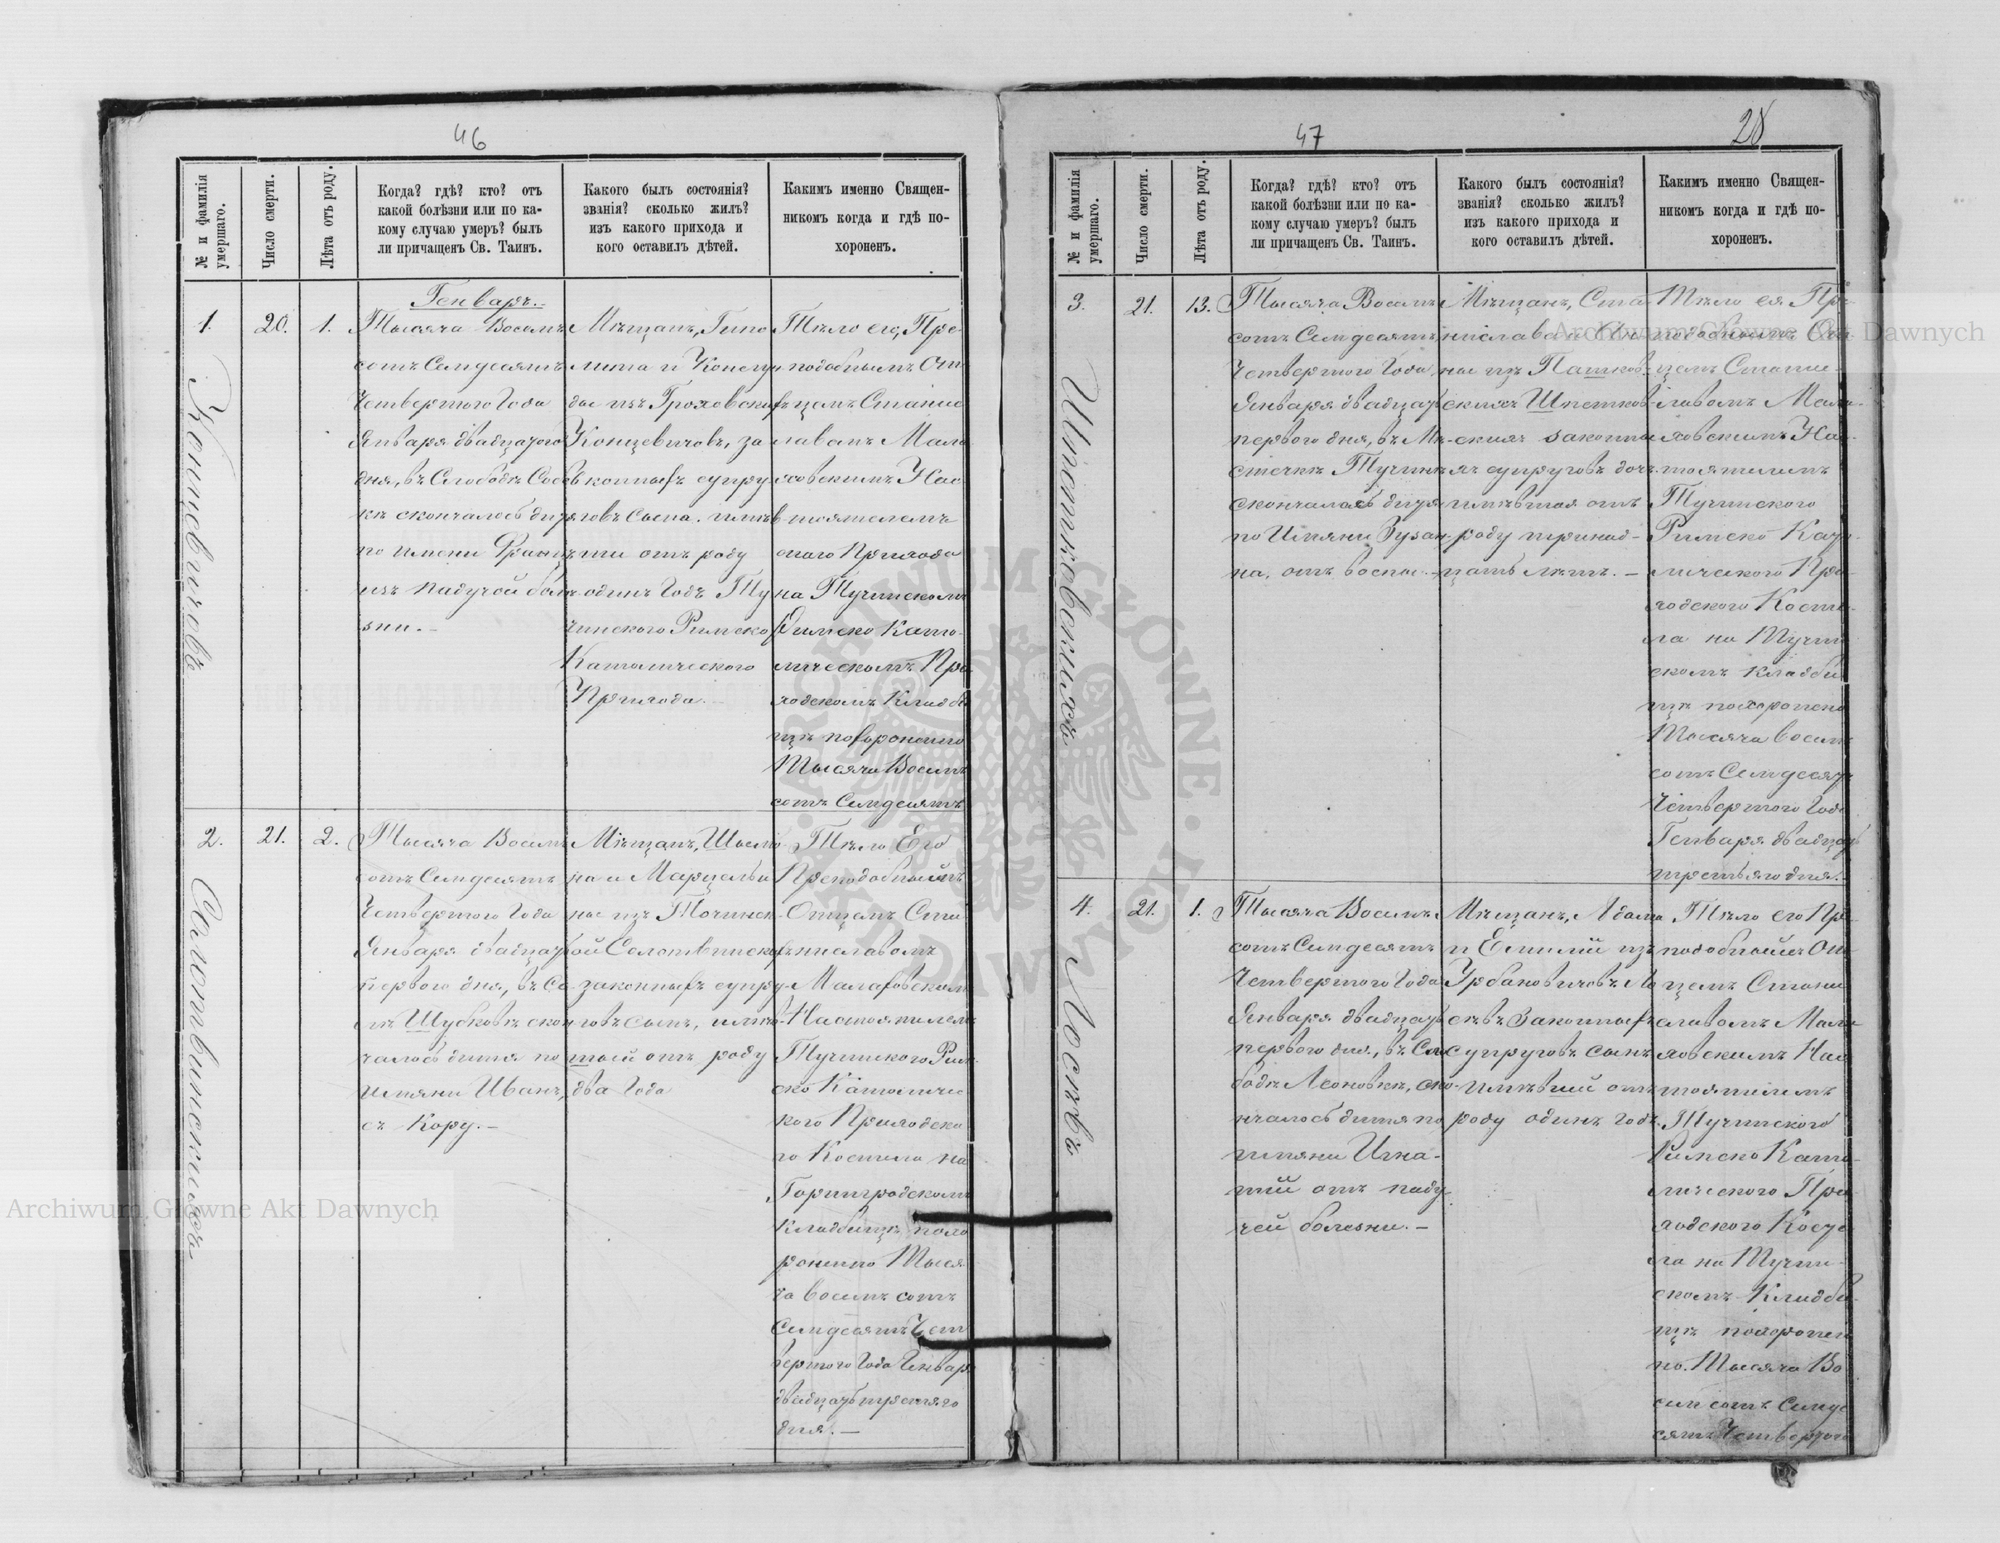 46
№ и фамилія умершаго.
Число смерти.
Лѣта отъ роду.
Когда? гдѣ? кто? отъ
какой болѣзни или по ка-
кому случаю умеръ? былъ
ли причащенъ Св. Таинъ.
Какого былъ состоянія?
званія? сколько жилъ?
изъ какого прихода и
кого оставилъ дѣтей.
Какимъ именно Священ-
никомъ когда и гдѣ по-
хороненъ.
Генварь.
1.
Концевичовъ
20.
1.
Тысяча Восемъ
сотъ Семдесятъ
Четвертого Года
Января двадцатого
дня, въ Слободѣ Сос
кѣ скончалось дитя
по имени Франц
изъ падучой болѣ
зни.-
Мѣщанъ, Гипо
лита и Констан
ціи изъ Гроховскихъ
Концевичовъ, за
конныхъ супру
говъ сына. имѣв
ши отъ роду
одинъ Годъ Ту
чинского Римско
Католического
Прихода.-
Тѣло его, Пре
подобнымъ От
цемъ Станис
лавомъ Мала
ховскимъ Нас
тоятелемъ
оного Прихода
на Тучинскомъ
Римско Като-
лическомъ При
ходскомъ Кладби
щѣ похоронено
Тысяча Восемъ
сотъ Семдесятъ
2.
Солотвинскихъ
21.
2.
Тысяча Восемъ
сотъ Семдесятъ
Четвертого Года
Января двадцать
первого дня, въ Се
лѣ Шубковѣ скон
чалось дитя по
имяни Иванъ,
съ Кору.-
Мѣщанъ, Шымо
на и Марцельи
ны изъ Точинск
ой Солотвинскихъ
законныхъ супру-
говъ сынъ, имѣв
шый отъ роду
два Года
Тѣло Его
Преподобнымъ
Отцемъ Ста
ниславомъ
Малаховскимъ
Настоятелемъ
Тучинского Рим
ско Католичес
кого Приходско
го Костела на
Горинградскомъ
Кладбищѣ похо
ронено Тыся
ча восемъ сотъ
Семдесятъ Чет
вертого Года Генваря
двадцать третяго
дня.-
47
28
№ и фамилія умершаго.
Число смерти.
Лѣта отъ роду.
Когда? гдѣ? кто? отъ
какой болѣзни или по ка-
кому случаю умеръ? былъ
ли причащенъ Св. Таинъ.
Какого былъ состоянія?
званія? сколько жилъ?
изъ какого прихода и
кого оставилъ дѣтей.
Какимъ именно Священ-
никомъ когда и гдѣ по-
хороненъ.
3.
Шпетковскихъ
21.
13.
Тысяча Восемъ
сотъ Семдесятъ
Четвертого Года
Января двадцать
первого дня, въ Мѣ-
стечкѣ Тучинѣ
скончалась дитя
по Имяни Зузан-
на, отъ воспы.-
Мѣщанъ, Ста
нислава и
ны изъ Пашков
скихъ Шпетков
скихъ законны
хъ супруговъ дочь
имѣвшая отъ
роду тринад-
цать лѣтъ.-
Тѣло ея Пре
подобнымъ От
цемъ Станис-
лавомъ Мала-
ховскимъ Нас-
тоятелемъ
Тучинского
Римско Като-
лического При
ходского Косте-
ла на Тучин
скомъ кладби
щѣ похоронено
Тысяча восемъ
сотъ Семдесятъ
Четвертого Года
Генваря двадцать
третьяго дня.
4.
Лосѣвъ
21.
1.
Тысяча Восемъ
сотъ Семдесятъ
Четвертого Года
Января двадцать
первого дня, въ Сло
бодѣ Леоновкѣ, ско-
нчалось дитя по
имяни Игна-
тій отъ паду
чей болезни.-
Мѣщанъ, Адама
и Емиліи изъ
Урбановичовъ Ло
сѣвъ Законныхъ
супруговъ сынъ
имѣвшій отъ
роду одинъ годъ
Тѣло его Пре
подобнымъ От
цемъ Стани
славомъ Мала
ховскимъ Нас
тоятелемъ
Тучинского
Римско Като
лического При
ходского Косте
ла на Тучин-
скомъ Кладби
щѣ похоронен
но. Тысяча Во
семъ сотъ Семде
сятъ Четвертого
Archiwum Główne Akt Dawnych
Archiwum Główne Akt Dawnych
ARCHIWUM GŁÓWNE AKT DAWNYCH